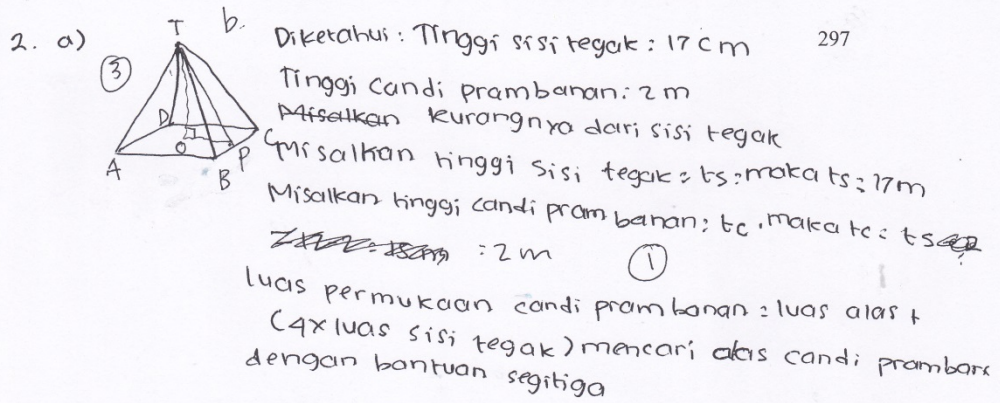 2. a)
3
T
D
C
O
P
A
B
b. Diketahui : Tinggi sisi tegak : 17 cm
297
Tinggi candi prambanan : 2 m
Misalkan kurangnya dari sisi tegak
Misalkan tinggi sisi tegak = ts : maka ts : 17 m
Misalkan tinggi candi prambanan : tc . maka tc : ts
: 2 m
1
luas permukaan candi prambanan : luas alas +
(4x luas sisi tegak) mencari alas candi prambana
dengan bantuan segitiga